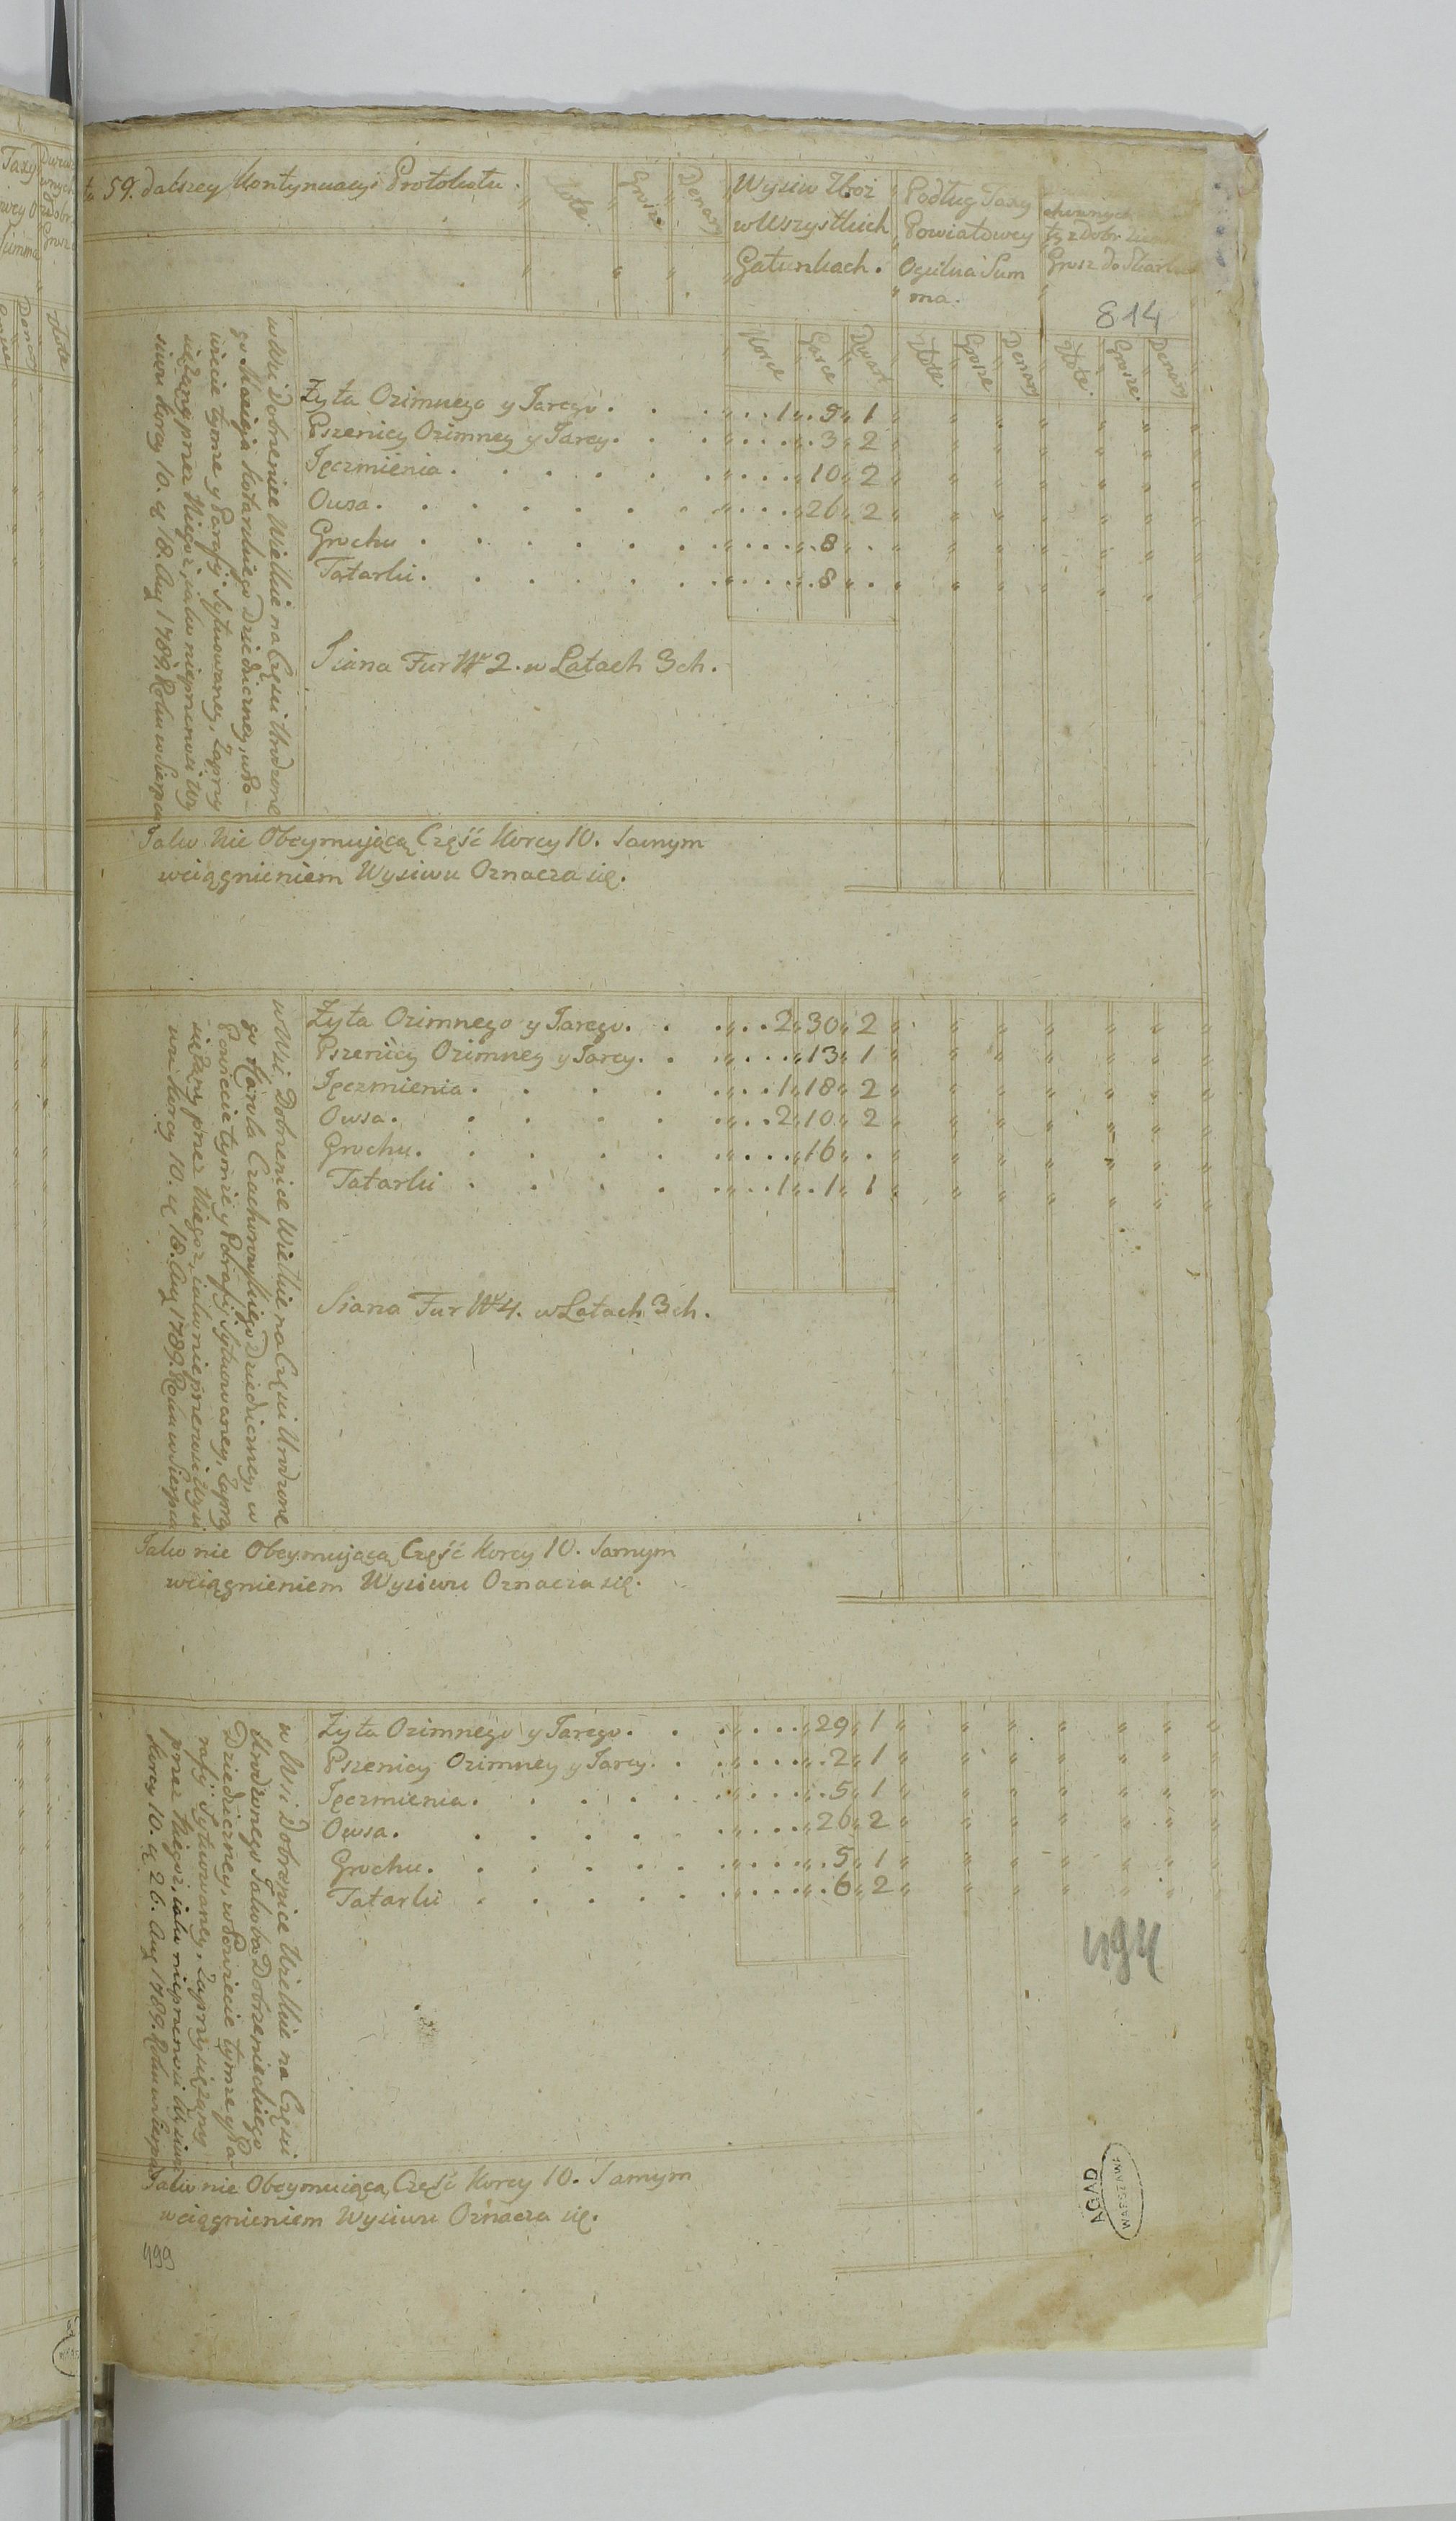 59. dalszey Kontynuacyi Protokułu.
Złote
Grosze
Denary
Wysiw Zboż
w Wszystkich
Gatunkach.
Podług Taxy
Powiatowey
Ogulna Sum
ma.
ty z Dobr Ziem
Grosz do Skarbu
814
Korce
Garce
Kwart
Złote
Grosze
Denary
Złote
Grosze
Denary
w Wsi Dobrzenice Wielkie na Częsci Urodzone
go Macieja Kotarskiego Dziedziczney, w Po-
wiecie tymże y Parafij Sytuowaney, Zaprzy
siężany przez Niegoż, jako nieprzenosi Wy
siwu Korcy 10. ą 18. Aug 1789. Roku w Sierpcu
Żyta Ozimnego y Jarego. 1 9 1
Pszenicy Ozimney y Jarey. 3 2
Jęczmienia. 10 2
Owsa. 26 2
Grochu 8
Tatarki. 8
Siana Fur Nr 2. w Latach 3ch.
Jako nie Obeymującą Część Korcy 10. Samym
wciągnieniem Wysiwu Oznacza się.
w Wsi Dobrzenice Wielkie na Częsci Urodzone
go Karola Czachorowskiego Dziedziczney, w
Powiecie tymże y Parafij Sytuowaney, Zaprzy
siężany przez Niegoż, jako nieprzenosi Wysi
wu Korcy 10. ą 18. Aug 1789. Roku w Sierpcu
Żyta Ozimnego y Jarego. 2 30 2
Pszenicy Ozimney y Jarey. 13 1
Jęczmienia. 1 18 2
Owsa. 2 10 2
Grochu. 16
Tatarki 1 1 1
Siana Fur Nr 4. w Latach 3ch.
Jako nie Obeymującą Część Korcy 10. Samym
wciągnieniem Wysiwu Oznacza się.
w Wsi Dobrznice Wielkie na Częsci
Urodzonego Jakoba Dobrzenieckiego
Dziedziczney, w Powiecie tymże y Pa
rafij Sytuowaney, Zaprzysiężany
przez Niegoż, jako nieprzenosi Wysiwu
Korcy 10. ą 26. Aug 1789. Roku w Sierpcu
Żyta Ozimnego y Jarego. 29 1
Pszenicy Ozimney y Jarey. 2 1
Jęczmienia. 5 1
Owsa. 26 2
Grochu. 5 1
Tatarki 6 2
494
Jako nie Obeymuiącą Część Korcy 10. Samym
wciągnieniem Wysiwu Oznacza się.
499
AGAD
WARSZAWA